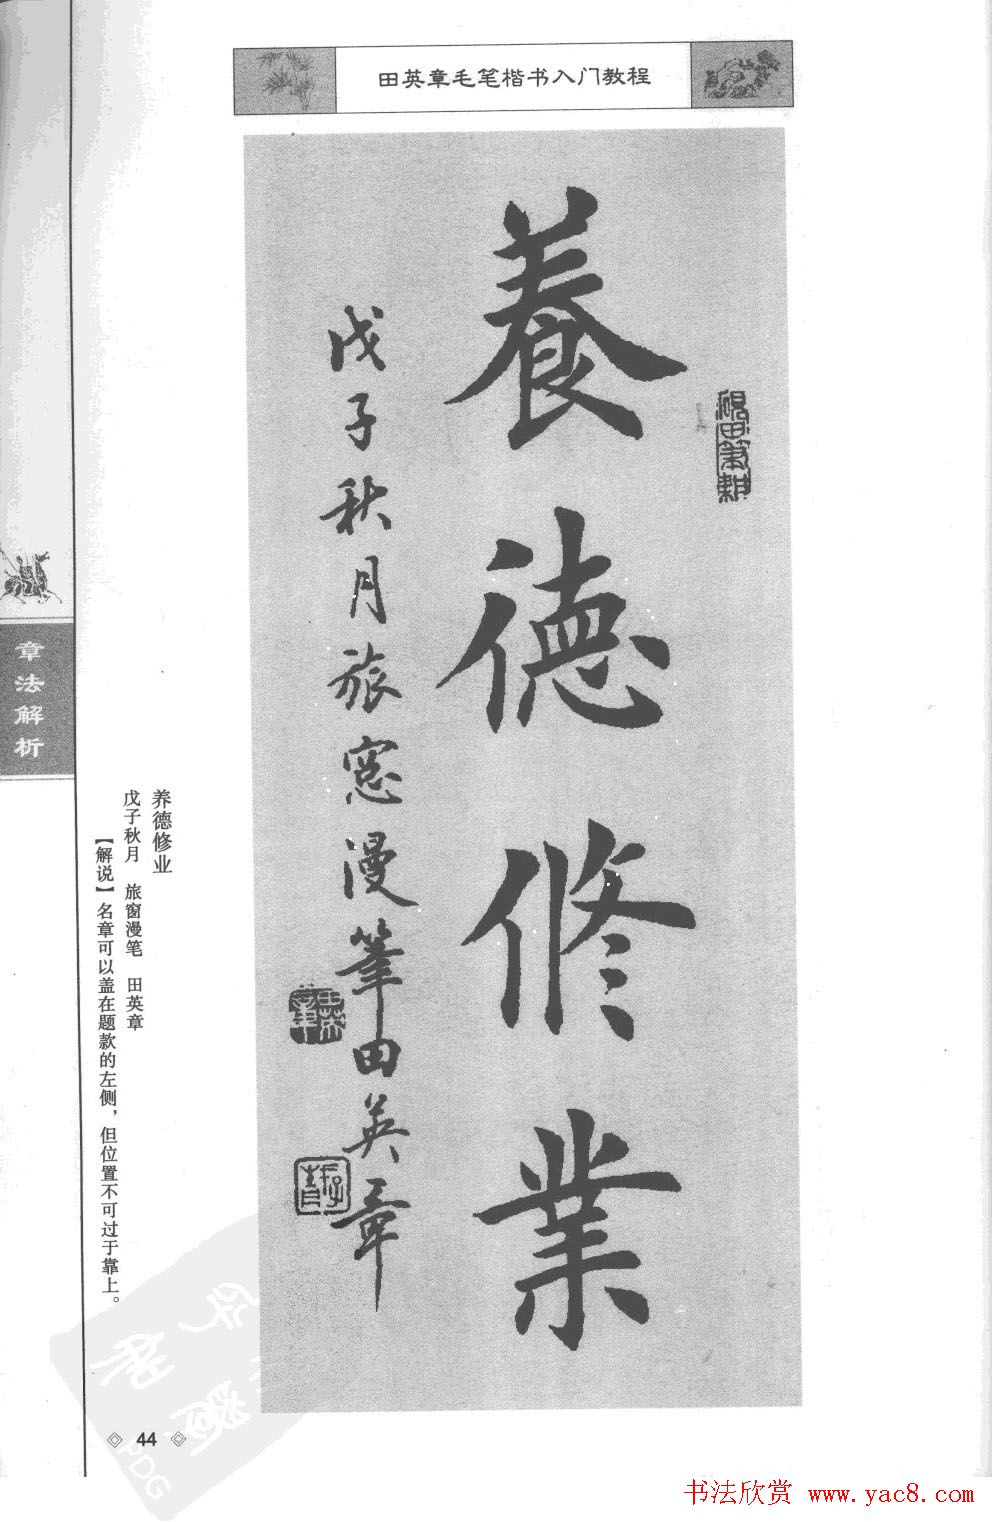 田英章毛笔楷书入门教程
養德修業
戊子秋月旅窓漫筆田英章
章法解析
养德修业
戊子秋月　旅窗漫笔　田英章
【解说】名章可以盖在题款的左侧，但位置不可过于靠上。
44
PDG
书法欣赏 www.yac8.com